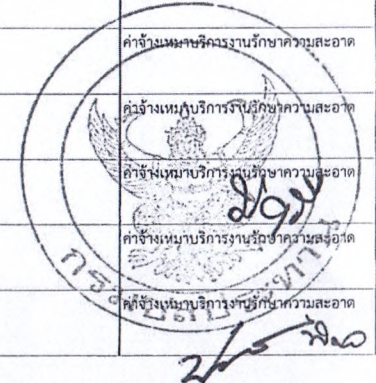 ค่าจ้างเหมาบริการงานรักษาความสะอาด
ค่าจ้างเหมาบริการงานรักษาความสะอาด
ค่าจ้างเหมาบริการงานรักษาความสะอาด
ค่าจ้างเหมาบริการงานรักษาความสะอาด
ค่าจ้างเหมาบริการงานรักษาความสะอาด
กรมชลประทาน